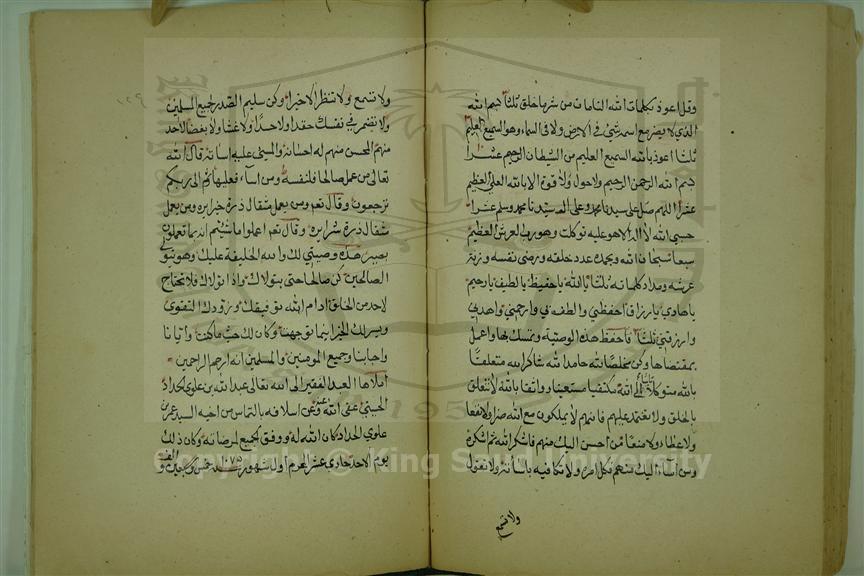 وقل اعوذ بكلمات الله التامات من شر ما خلق ثلثا بسم الله
الذي لا يضر مع اسمه شئ في الارض ولا في السماء وهو السميع العليم
ثلثا اعوذ بالله السميع العليم من الشيطان الرجيم عشرا
بسم الله الرحمن الرحيم ولا حول ولا قوة الا بالله العلي العظيم
عشرا اللهم صل على سيدنا محمد وعلى ال سيدنا محمد وسلم عشرا
حسبي الله لا اله الا هو عليه توكلت وهو رب العرش العظيم
سبعا سبحان الله وبحمده عدد خلقه ورضى نفسه وزنة
عرشه ومداد كلماته ثلثا يا الله يا حفيظ يا لطيف يا رحيم
يا هادي يا رزاق احفظني والطف بي وارحمني واهدني
وارزقني ثلثا فاحفظ هذه الوصية وتمسك بها واعمل
بمقتضاها وكن مخلصا لله حامدا لله شاكرا لله متعلقا
بالله متوكلا على الله مكتفيا مستعينا واثقا بالله لا تتعلق
بالخلق ولا تعتمد عليهم فانهم لا يملكون مع الله ضرا ولا نفعا
ولا عطاء ولا منعا من احسن اليك منهم فاشكر الله ثم اشكره
ومن اساء اليك منهم فكل امره ولا تكافيه باساءته ولا تقول
ولا تسمع
ولا تسمع ولا تنظر الا خيرا وكن سليم الصدر لجميع المسلمين
ولا تضمر في نفسك حقدا ولا حسدا ولا غشا ولا بغضا لاحد
منهم المحسن منهم له احسانه والمسئ عليه اساءته قال الله
تعالى من عمل صالحا فلنفسه ومن اساء فعليها ثم الى ربكم
ترجعون وقال تعالى ومن يعمل مثقال ذرة خيرا يره ومن يعمل
مثقال ذرة شرا يره وقال تعالى اعملوا ما شئتم انه بما تعملون
بصير هذه وصيتي لك والله الخليفة عليك وهو يتولى
الصالحين كن صالحا حتى يتولاك واذا تولاك فلا تحتاج
لاحد من الخلق ادام الله توفيقك وزودك التقوى
ويسر لك الخير اينما توجهت وكان لك حيث ما كنت وايانا
واحبابنا وجميع المومنين والمسلمين انه ارحم الراحمين
املاها العبد الفقير الى الله تعالى عبد الله بن علوي الحداد
الحسيني عفى الله عنه وعن اسلافه بالتماس من اخيه السيد عمر بن
علوي الحداد كان الله له ووفق الجميع لمرضاته وكان ذلك
يوم الاحد حادي عشر المحرم اول شهور سنة ١٠٧٥ خمس وسبعين والف
Copyright © King Saud University
1957